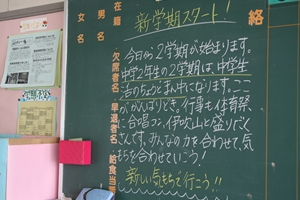 新学期スタート!
絡
在籍
男 名
女 名
欠席者名
早退者名
給食当
今日から2学期が始まります。
中学2年生の2学期は、中学生
活のちょうどまん中になります。ここ
が、がんばりどき。行事も体育祭
、合唱コン、伊吹山と盛りだく
さんです。みんなの力を合わせて、気
もちを合わせていこう!
新しい気もちで行こう!!